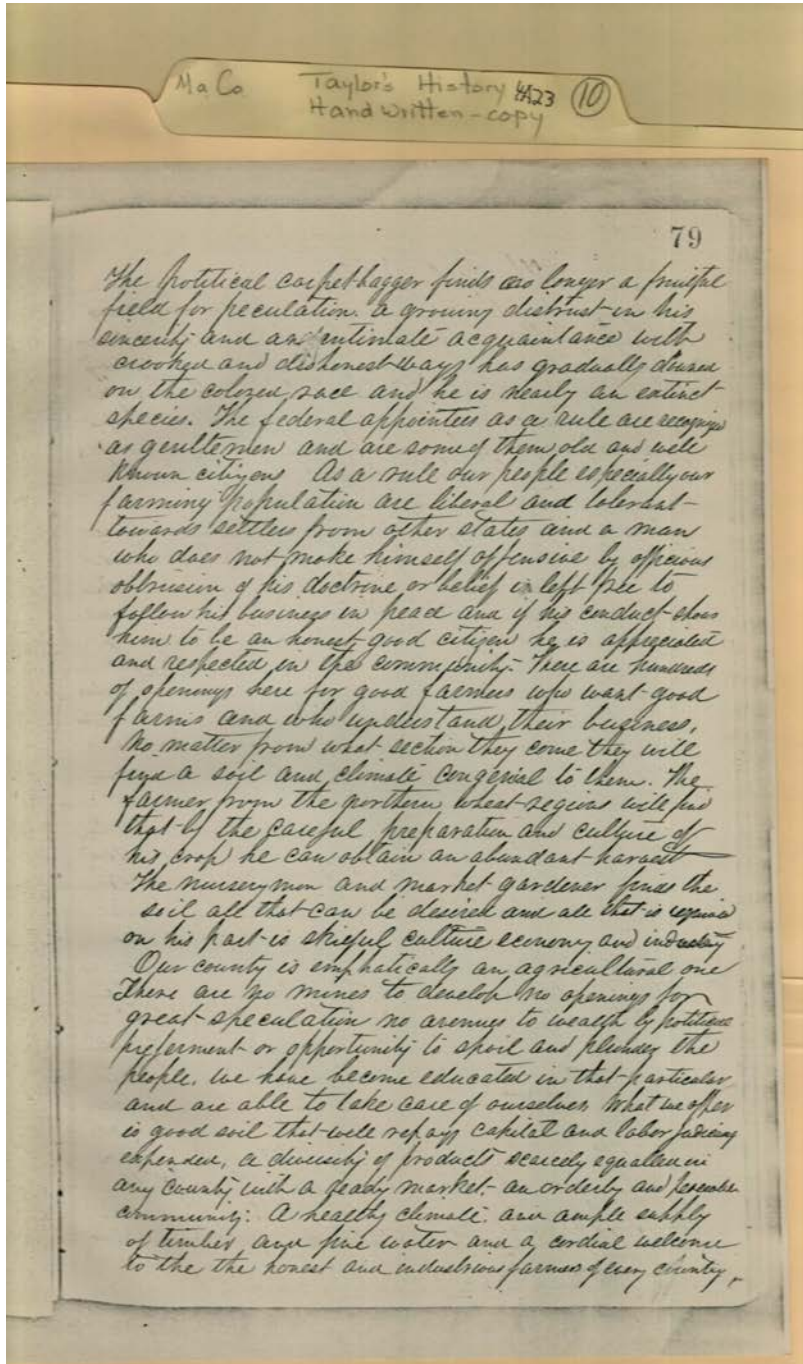 Ma Co Taylor's History 4A23 10
Hand written - copy
79
The political carpet bagger finds no longer a fruitful
field for peculation. a growing distrust in his
sincerity and an intimate acquaintance with
crooked and dishonest ways has gradually dawned
on the colored race and he is nearly an extinct
species. The federal appointees as a rule are
as gentlemen and are some of them old and well
known citizens As a rule our people especially our
farming population are liberal and tolerant
towards settlers from other states and a man
who does not make himself offensive by officious
obtrusion of his doctrine or belief is left free to
follow his business in peace and if his conduct shows
him to be an honest good citizen he is appreciated
and respected in the community. There are hundreds
of openings here for good farmers who want good
farms and who understand their business.
No matter from what section they come they will
find a soil and climate congenial to them. The
farmer from the northern wheat regions will find
that by the careful preparation and culture of
his crop he can obtain an abundant harvest
The nurserymen and market gardener finds the
soil all that can be desired and all that is required
on his part is skilful culture economy and industry
Our county is emphatically an agricultural one
There are no mines to develop no openings for
great speculation no avenues to wealth by political
preferment or opportunity to spoil and plunder the
people. we have become educated in that particular
and are able to take care of ourselves What we offer
is good soil that will repay capital and labor
expended, a diversity of products scarcely equalled in
any county with a ready market. an orderly and peaceable
community. A healthy climate. and ample supply
of timber and fine water and a cordial welcome
to the the honest and industrious farmers of every country.